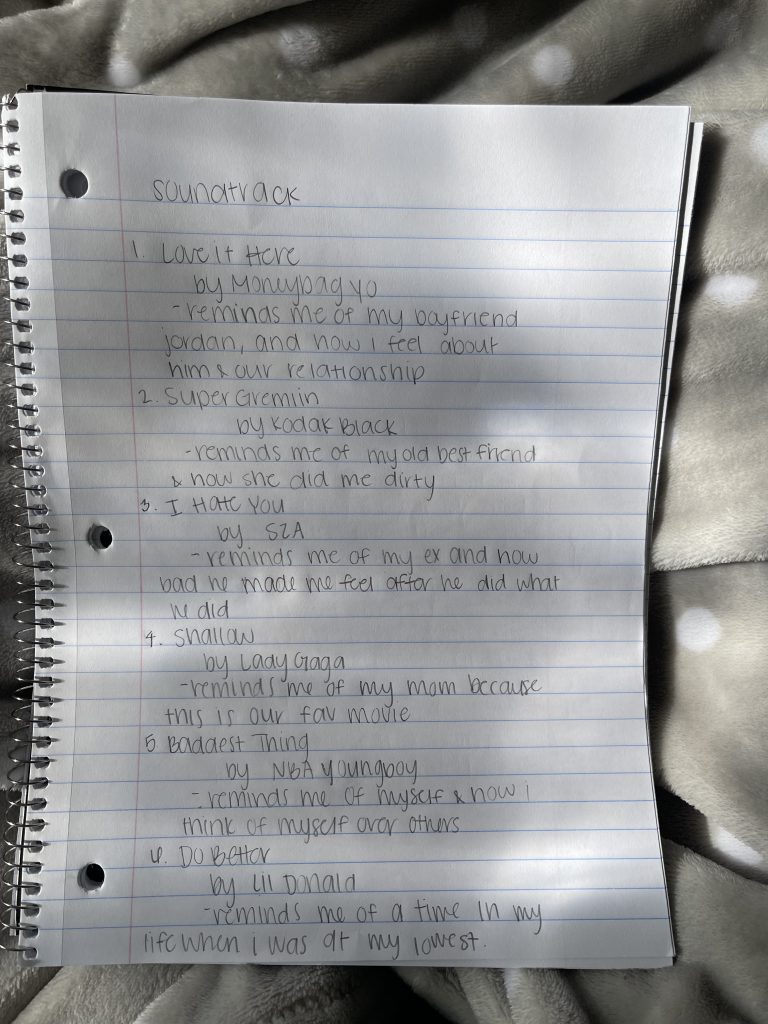 soundtrack
1. Love it Here
by Moneybag yo
- reminds me of my boyfriend
jordan, and how i feel about
him & our relationship
2. Super Gremlin
by Kodak Black
- reminds me of my old best friend
& how she did me dirty
3. I Hate You
by SZA
- reminds me of my ex and how
bad he made me feel after he did what
he did
4. Shallow
by Lady Gaga
- reminds me of my mom because
this is our fav movie
5 Baddest Thing
by NBA youngboy
- reminds me of myself & how i
think of myself over others
6. Do Better
by Lil Donald
- reminds me of a time in my
life when i was at my lowest.